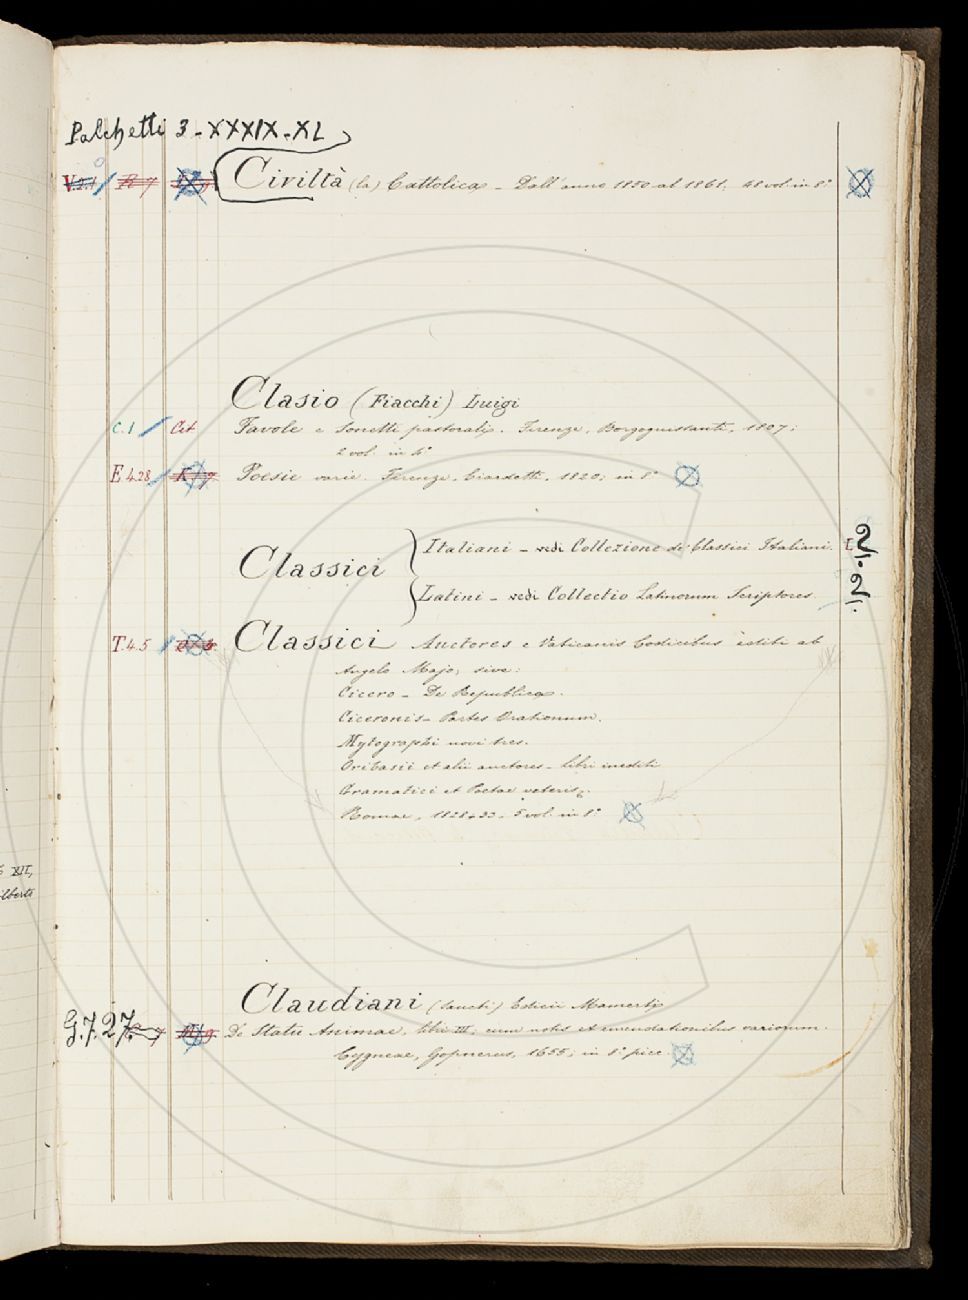 Palchetti 3 - XXXIX - XL
Civiltà (la) Cattolica - Dall'anno 1850 al 1861. 48 vol. in 8°
Clasio (Fiacchi) Luigi
C. 1 / Cet Favole e Sonetti pastorali. Firenze, Borgoguissanti, 1807;
2 vol. in 4°
E 4.28 / Poesie varie. Firenze, Ciardetti, 1820; in 8°
Classici
Italiani - vedi Collezione de' Classici Italiani. 2. 2.
Latini - vedi Collectio Latinorum Scriptores
T. 4. 5 / Classici Auctores e Vaticanis Codicibus editi ab
Angelo Majo, sive:
Cicero - De Republica.
Ciceronis - Partes Orationum.
Mytographi novi tres.
Oribasii et alii auctores - libri inediti
Gramatici et Poetae veteris
Romae, 1828-33. 5 vol. in 8°
Claudiani (Sancti) Edicii Mamerti
G. 7. 27. De Statu Animae, libri III, cum notis et emendationibus variorum.
Cygneae, Gopnerus, 1655; in 8° picc.
XII,